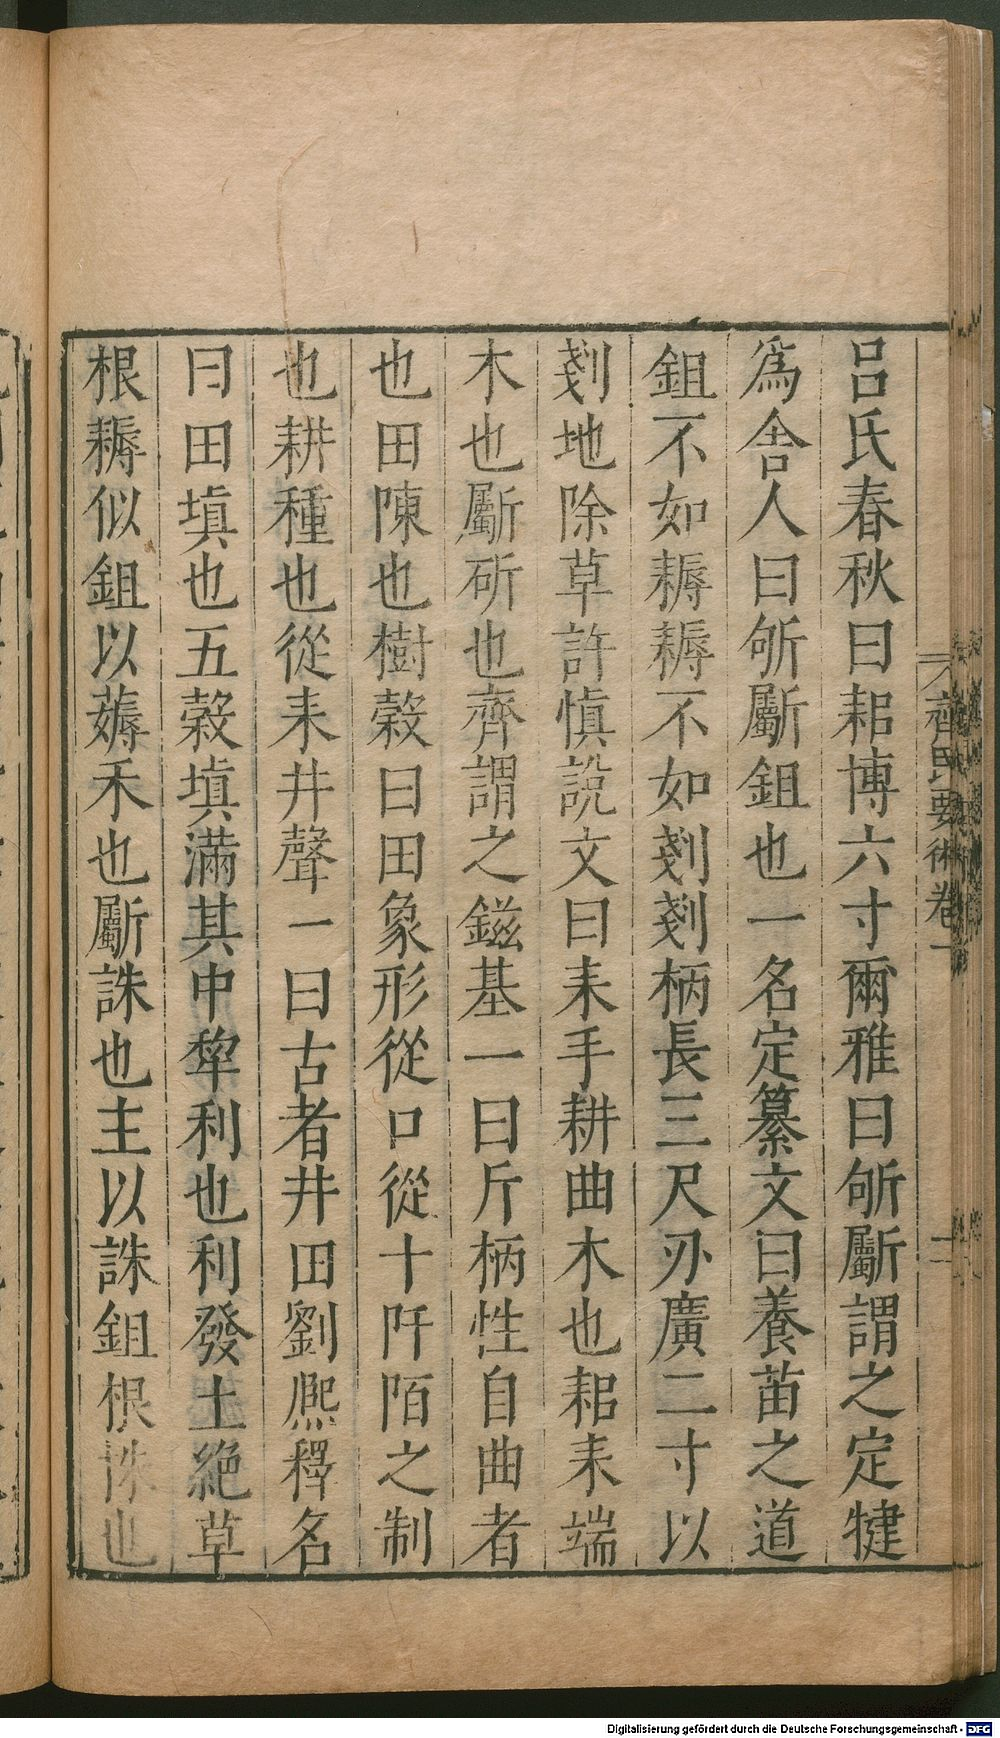 吕氏春秋曰耜博六寸爾雅曰斪斸謂之定犍
爲舍人曰斪斸鉏也一名定纂文曰養苗之道
鉏不如耨耨不如剗剗柄長三尺刃廣二寸以
剗地除草許慎說文曰耒手耕曲木也耜耒端
木也斸斫也齊謂之鎡基一曰斤柄性自曲者
也田陳也樹穀曰田象形從口從十阡陌之制
也耕種也從耒井聲一曰古者井田劉熈釋名
曰田塡也五穀塡滿其中犂利也利發土絶草
根耨似鉏以薅禾也斸誅也主以誅鉏根誅也
齊民要術卷一
二
Digitalisierung gefördert durch die Deutsche Forschungsgemeinschaft - DFG